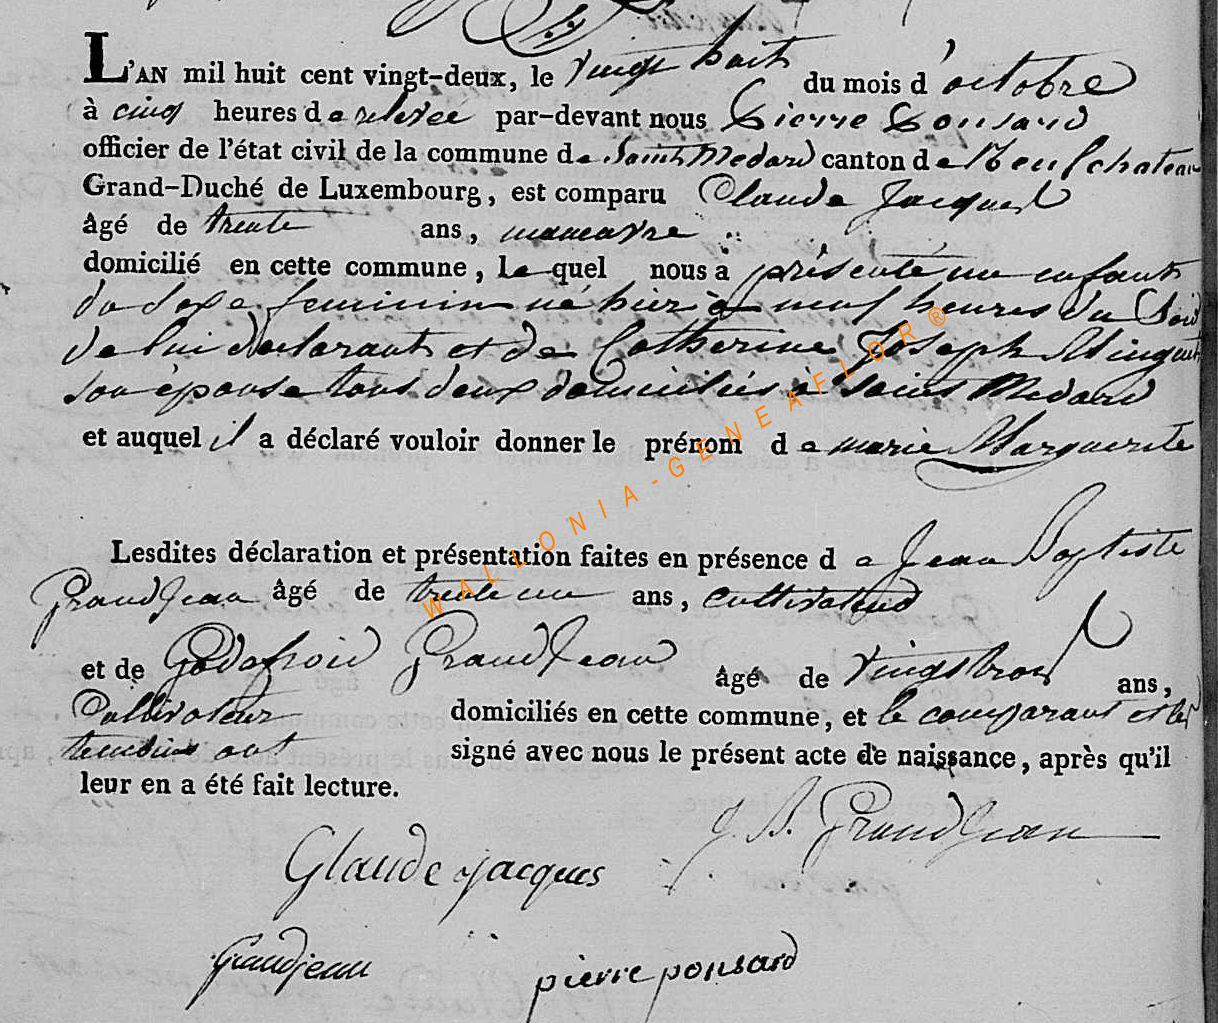 L'AN mil huit cent vingt-deux, le vingt huit du mois d'octobre
à cinq heures de relevee par-devant nous Pierre Ponsard
officier de l'état civil de la commune de Saint Medard canton de Neufchateau
Grand-Duché de Luxembourg, est comparu Claude Jacques
âgé de trente ans, manœuvre
domicilié en cette commune, lequel nous a présenté un enfant
du sexe feminin né hier à neuf heures du Soir
de lui declarant et de Catherine Joseph
son épouse tous deux domiciliés à Saint Medard
et auquel il a déclaré vouloir donner le prénom de marie Marguerite
Lesdites déclaration et présentation faites en présence de Jean Baptiste
Grandjean âgé de trente un ans, cultivateur
et de Godefroid Grandjean âgé de vingt trois ans,
Cultivateur domiciliés en cette commune, et le comparant et les
temoins ont signé avec nous le présent acte de naissance, après qu'il
leur en a été fait lecture.
J. B. Grandjean
Glaude jacques
grandjean pierre ponsard
WALLONIA-GENEAFLOR®